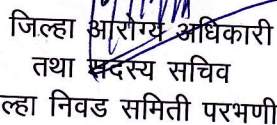 जिल्हा आरोग्य अधिकारी
तथा सदस्य सचिव
ल्हा निवड समिती परभणी